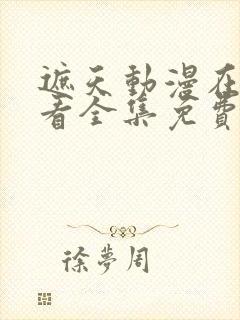 遮天動漫在
看全集免費
徐夢周